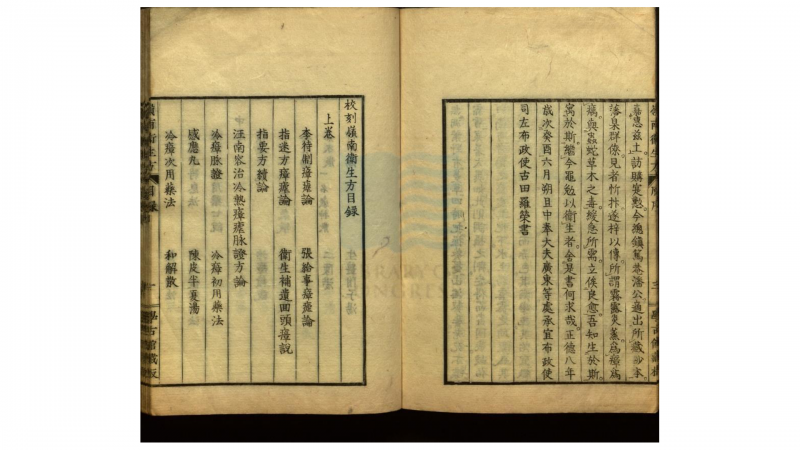 嘉惠茲土訪購寔懃今總鎮篤菴潘公適出所藏抄本
藩臬群僚見者忻抃遂梓以傳所謂霧露炎蒸為瘴為
癘與蟲蛇草木之毒緩急所需立俟良愈吾知生於斯
寓於斯繼今黽勉以衛生者舍是書何求哉正德八年
歲次癸酉六月朔旦中奉大夫廣東等處承宣布政使
司左布政使古田羅榮書
校刻嶺南衛生方目錄
上卷
李待制瘴瘧論 張給事瘴瘧論
指迷方瘴瘧論 衛生補遺回頭瘴說
指要方續論
汪南容治冷熱瘴瘧脉證方論
冷瘴脉證 冷瘴初用藥法
感應丸 陳皮半夏湯
冷瘴次用藥法 和解散
嶺南衛生方 目錄 一 學古館藏版